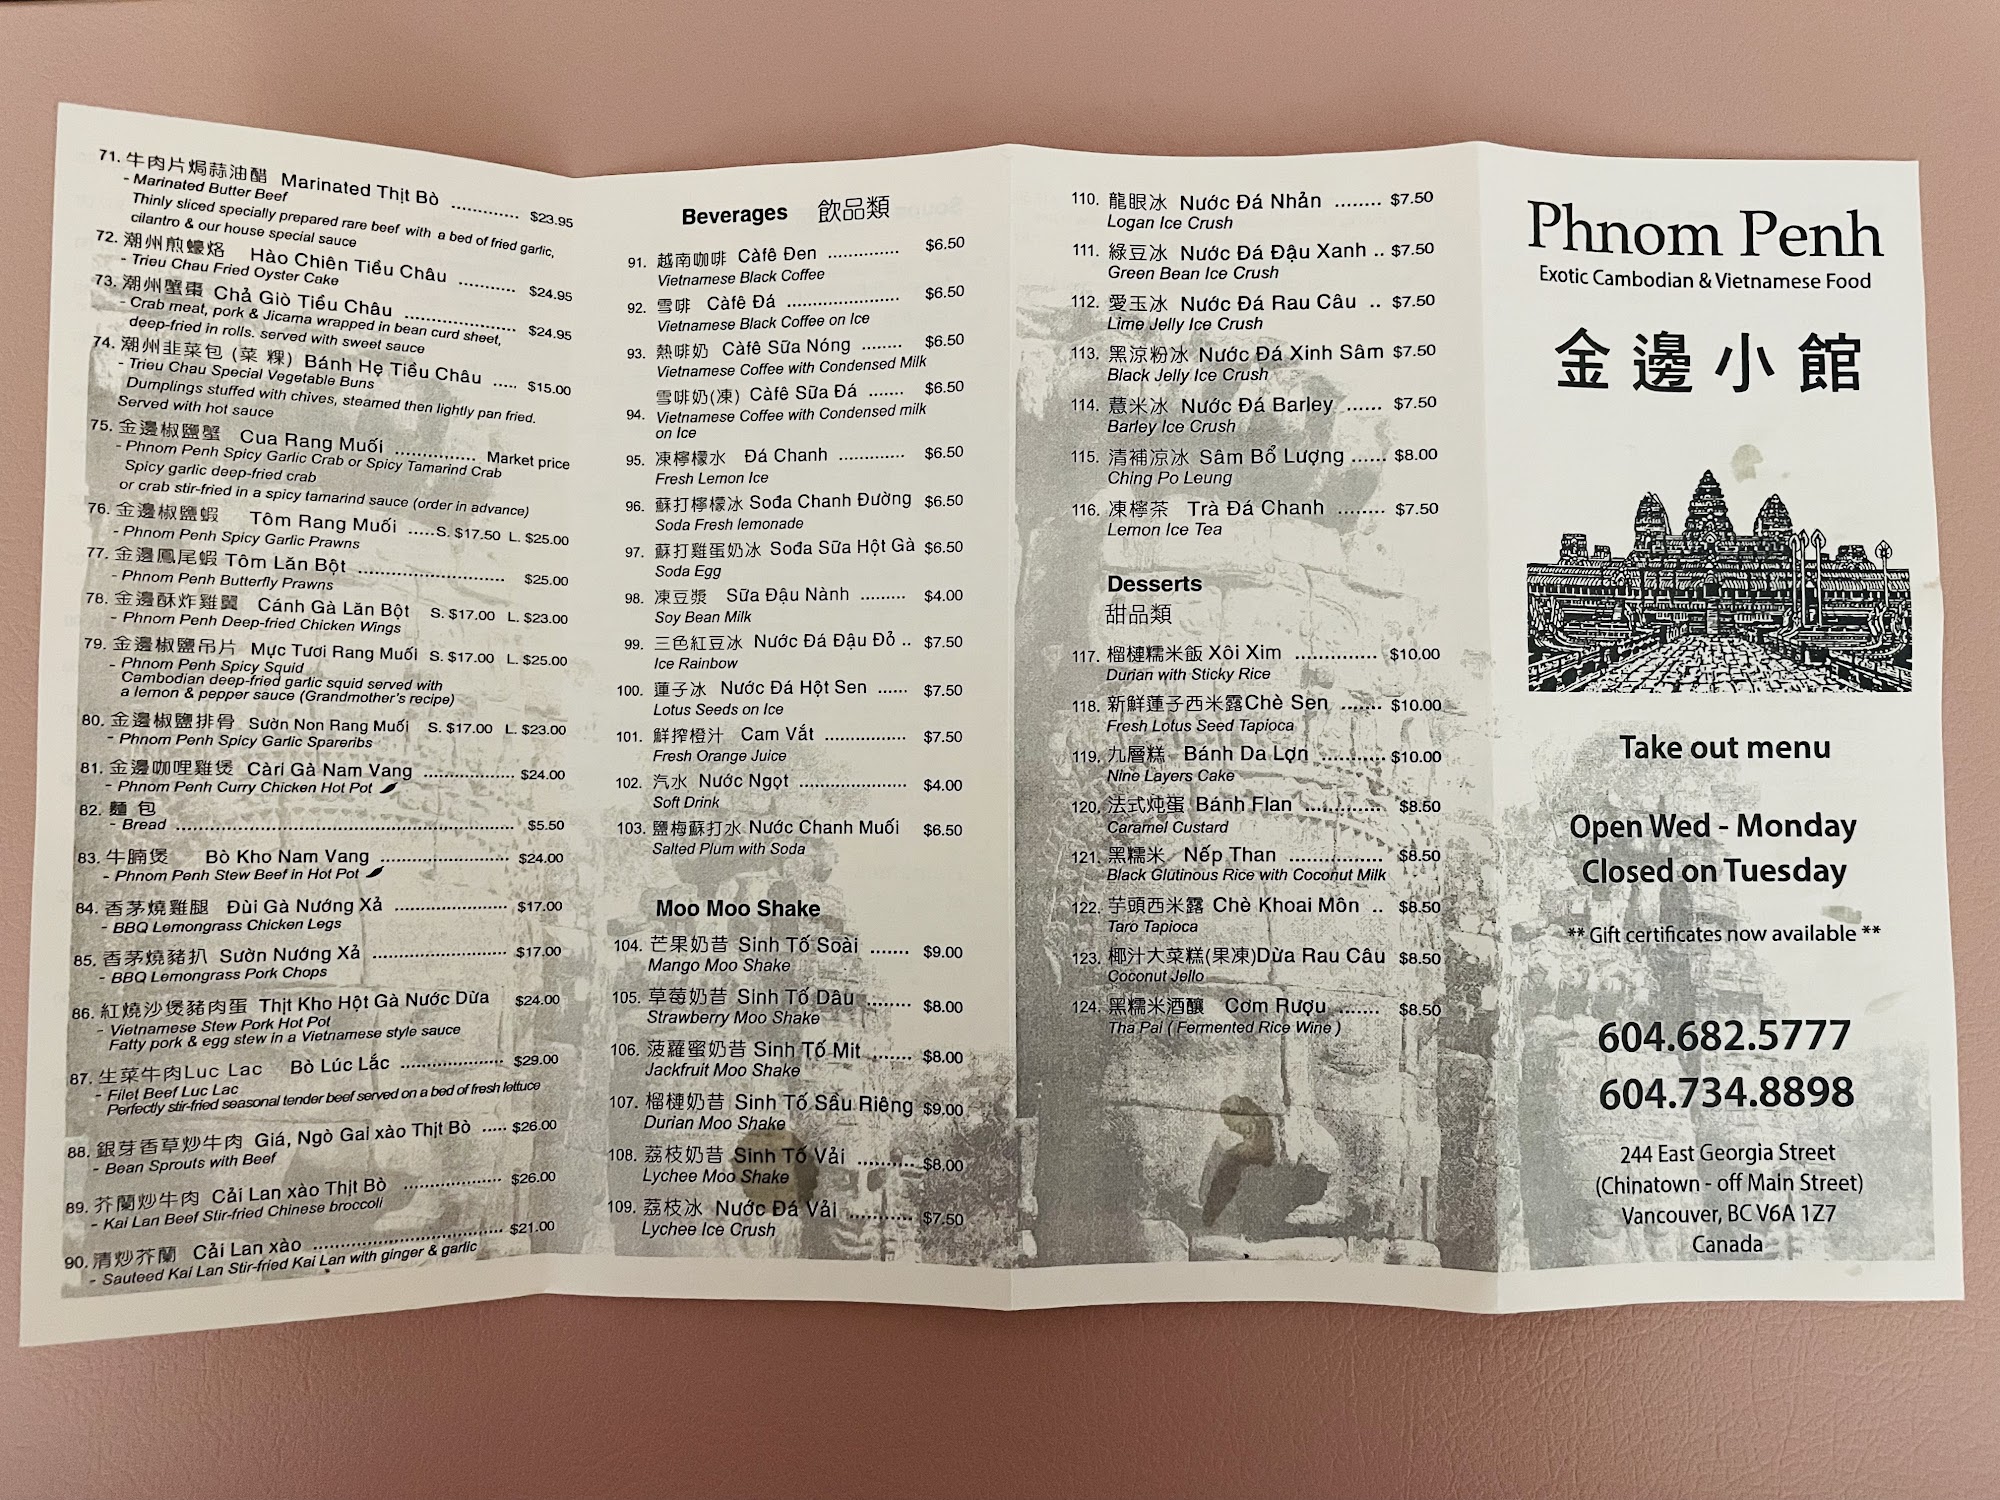 71. 牛肉片焗蒜油醋 Marinated Thịt Bò ............ $23.95
- Marinated Butter Beef
Thinly sliced specially prepared rare beef with a bed of fried garlic,
cilantro & our house special sauce
72. 潮州煎蠔烙 Hào Chiên Tiểu Châu .......... $24.95
- Trieu Chau Fried Oyster Cake
73. 潮州蟹棗 Chả Giò Tiểu Châu .................... $24.95
- Crab meat, pork & Jicama wrapped in bean curd sheet,
deep-fried in rolls. served with sweet sauce
74. 潮州韭菜包 (菜 粿) Bánh Hẹ Tiểu Châu ..... $15.00
- Trieu Chau Special Vegetable Buns
Dumplings stuffed with chives, steamed then lightly pan fried.
Served with hot sauce
75. 金邊椒鹽蟹 Cua Rang Muối ............... Market price
- Phnom Penh Spicy Garlic Crab or Spicy Tamarind Crab
Spicy garlic deep-fried crab
or crab stir-fried in a spicy tamarind sauce (order in advance)
76. 金邊椒鹽蝦 Tôm Rang Muối .....S. $17.50 L. $25.00
- Phnom Penh Spicy Garlic Prawns
77. 金邊鳳尾蝦 Tôm Lăn Bột ........................... $25.00
- Phnom Penh Butterfly Prawns
78. 金邊酥炸雞翼 Cánh Gà Lăn Bột S. $17.00 L. $23.00
- Phnom Penh Deep-fried Chicken Wings
79. 金邊椒鹽吊片 Mực Tươi Rang Muối S. $17.00 L. $25.00
- Phnom Penh Spicy Squid
Cambodian deep-fried garlic squid served with
a lemon & pepper sauce (Grandmother's recipe)
80. 金邊椒鹽排骨 Sườn Non Rang Muối S. $17.00 L. $23.00
- Phnom Penh Spicy Garlic Spareribs
81. 金邊咖哩雞煲 Càri Gà Nam Vang ................ $24.00
- Phnom Penh Curry Chicken Hot Pot
82. 麵 包
- Bread .......................................................... $5.50
83. 牛腩煲 Bò Kho Nam Vang ....................... $24.00
- Phnom Penh Stew Beef in Hot Pot
84. 香茅燒雞腿 Đùi Gà Nướng Xả .................... $17.00
- BBQ Lemongrass Chicken Legs
85. 香茅燒豬扒 Sườn Nướng Xả ........................ $17.00
- BBQ Lemongrass Pork Chops
86. 紅燒沙煲豬肉蛋 Thịt Kho Hột Gà Nước Dừa $24.00
- Vietnamese Stew Pork Hot Pot
Fatty pork & egg stew in a Vietnamese style sauce
87. 生菜牛肉Luc Lac Bò Lúc Lắc .................. $29.00
- Filet Beef Luc Lac
Perfectly stir-fried seasonal tender beef served on a bed of fresh lettuce
88. 銀芽香草炒牛肉 Giá, Ngò Gai xào Thịt Bò ..... $26.00
- Bean Sprouts with Beef
89. 芥蘭炒牛肉 Cải Lan xào Thịt Bò .................. $26.00
- Kai Lan Beef Stir-fried Chinese broccoli
90. 清炒芥蘭 Cải Lan xào .................................. $21.00
- Sauteed Kai Lan Stir-fried Kai Lan with ginger & garlic
Beverages 飲品類
91. 越南咖啡 Càfê Đen .............. $6.50
Vietnamese Black Coffee
92. 雪啡 Càfê Đá ...................... $6.50
Vietnamese Black Coffee on Ice
93. 熱啡奶 Càfê Sữa Nóng ........ $6.50
Vietnamese Coffee with Condensed Milk
94. 雪啡奶(凍) Càfê Sữa Đá ....... $6.50
Vietnamese Coffee with Condensed milk
on Ice
95. 凍檸檬水 Đá Chanh ............. $6.50
Fresh Lemon Ice
96. 蘇打檸檬冰 Sođa Chanh Đường $6.50
Soda Fresh lemonade
97. 蘇打雞蛋奶冰 Sođa Sữa Hột Gà $6.50
Soda Egg
98. 凍豆漿 Sữa Đậu Nành ......... $4.00
Soy Bean Milk
99. 三色紅豆冰 Nước Đá Đậu Đỏ .. $7.50
Ice Rainbow
100. 蓮子冰 Nước Đá Hột Sen ...... $7.50
Lotus Seeds on Ice
101. 鮮搾橙汁 Cam Vắt ................ $7.50
Fresh Orange Juice
102. 汽水 Nước Ngọt ..................... $4.00
Soft Drink
103. 鹽梅蘇打水 Nước Chanh Muối $6.50
Salted Plum with Soda
Moo Moo Shake
104. 芒果奶昔 Sinh Tố Soài ....... $9.00
Mango Moo Shake
105. 草莓奶昔 Sinh Tố Dâu ........ $8.00
Strawberry Moo Shake
106. 菠蘿蜜奶昔 Sinh Tố Mit ....... $8.00
Jackfruit Moo Shake
107. 榴槤奶昔 Sinh Tố Sầu Riêng $9.00
Durian Moo Shake
108. 荔枝奶昔 Sinh Tố Vải .......... $8.00
Lychee Moo Shake
109. 荔枝冰 Nước Đá Vải ........... $7.50
Lychee Ice Crush
110. 龍眼冰 Nước Đá Nhản ........ $7.50
Logan Ice Crush
111. 綠豆冰 Nước Đá Đậu Xanh .. $7.50
Green Bean Ice Crush
112. 愛玉冰 Nước Đá Rau Câu .. $7.50
Lime Jelly Ice Crush
113. 黑涼粉冰 Nước Đá Xinh Sâm $7.50
Black Jelly Ice Crush
114. 薏米冰 Nước Đá Barley ...... $7.50
Barley Ice Crush
115. 清補涼冰 Sâm Bổ Lượng ...... $8.00
Ching Po Leung
116. 凍檸茶 Trà Đá Chanh ........ $7.50
Lemon Ice Tea
Desserts
甜品類
117. 榴槤糯米飯 Xôi Xim .............. $10.00
Durian with Sticky Rice
118. 新鮮蓮子西米露Chè Sen ....... $10.00
Fresh Lotus Seed Tapioca
119. 九層糕 Bánh Da Lợn ........... $10.00
Nine Layers Cake
120. 法式炖蛋 Bánh Flan ............. $8.50
Caramel Custard
121. 黑糯米 Nếp Than ................ $8.50
Black Glutinous Rice with Coconut Milk
122. 芋頭西米露 Chè Khoai Môn .. $8.50
Taro Tapioca
123. 椰汁大菜糕(果凍)Dừa Rau Câu $8.50
Coconut Jello
124. 黑糯米酒釀 Cơm Rượu ....... $8.50
Tha Pai ( Fermented Rice Wine )
Phnom Penh
Exotic Cambodian & Vietnamese Food
金邊小館
Take out menu
Open Wed - Monday
Closed on Tuesday
** Gift certificates now available **
604.682.5777
604.734.8898
244 East Georgia Street
(Chinatown - off Main Street)
Vancouver, BC V6A 1Z7
Canada